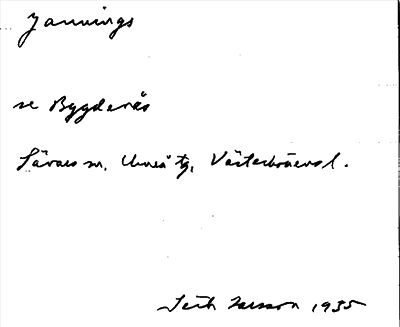 Jannings
se Bygdenäs
Sävars sn. Umeå tg. Västerbottens l.
Larsson 1935